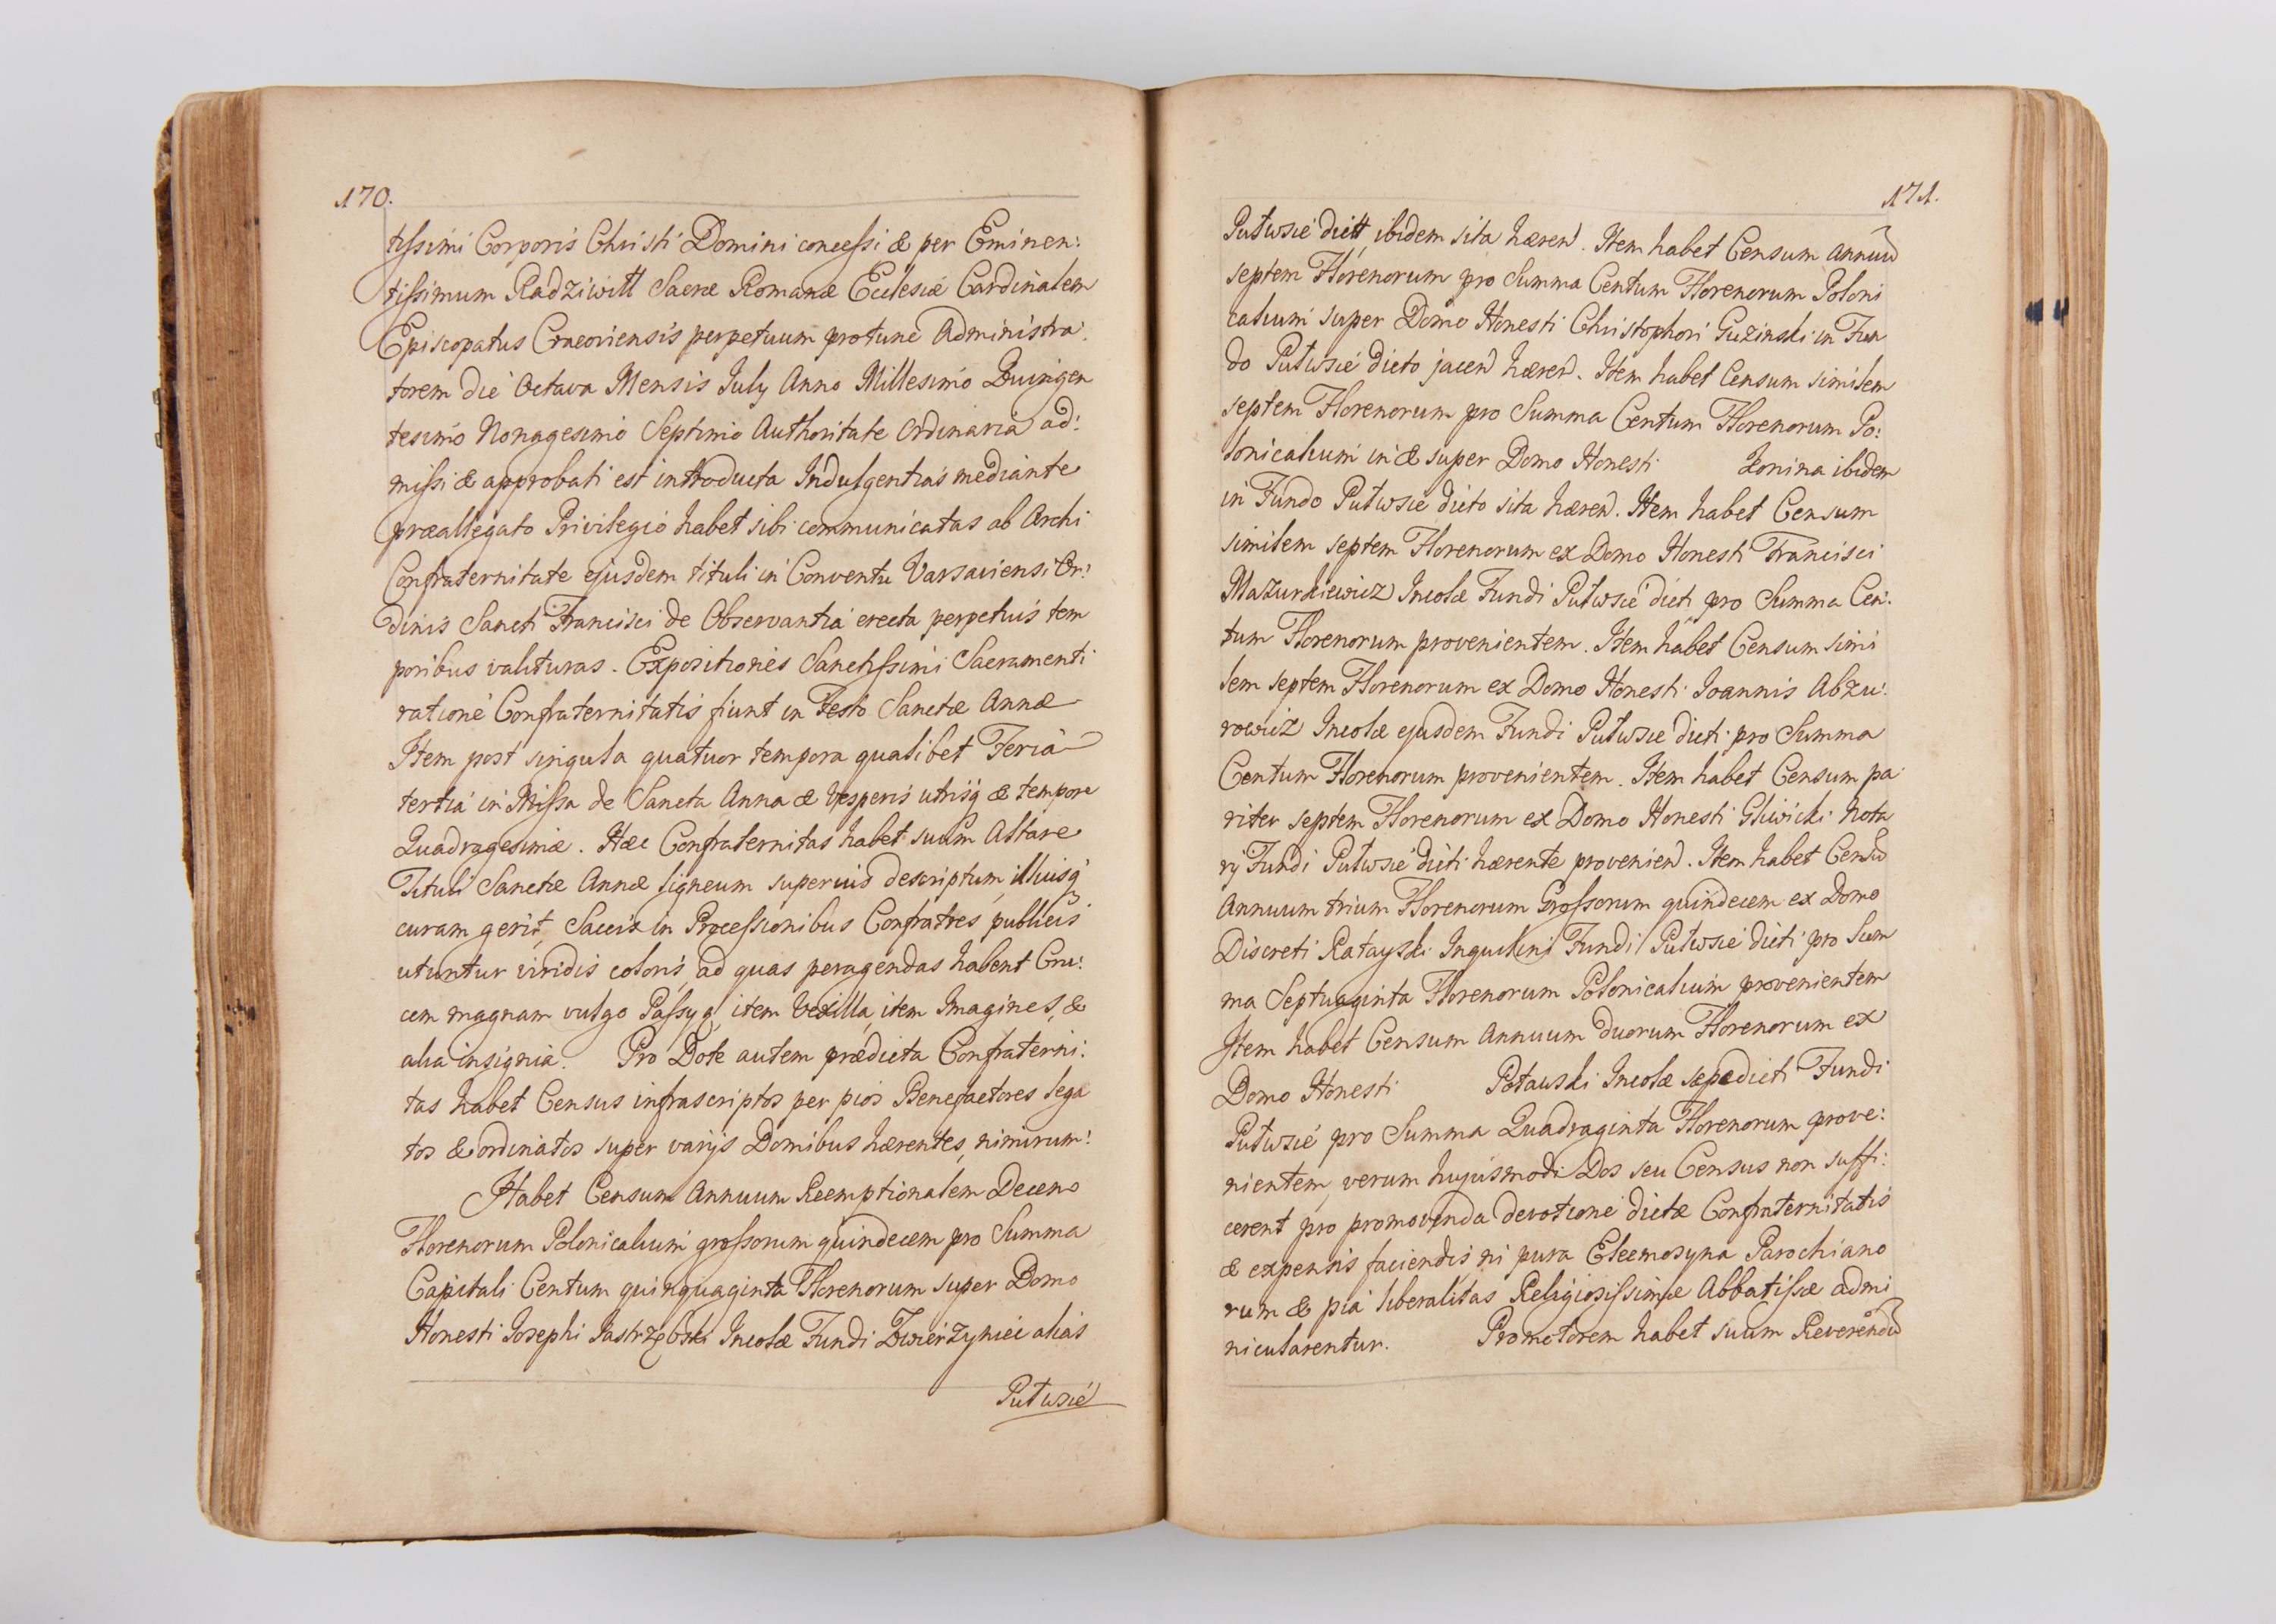 170.
tissimi Corporis Christi Domini concessi & per Eminen:
tissimum Radziwitt Sacræ Romanæ Ecclesiæ Cardinalem
Episcopatus Cracoviensis perpetuum protunc Administra:
torem die Octava Mensis July Anno Millesimo Quingen
tesimo Nonagesimo Septimo Authoritate Ordinaria ad:
missi & approbati est introducta Indulgentias mediante
præallegato Privilegio habet sibi communicatas ab Archi
Confraternitate ejusdem tituli in Conventu Varsaviensi Or:
dinis Sancti Francisci de Observantia erecta perpetuis tem
poribus valituras. Expositiones Sanctissimi Sacramenti
ratione Confraternitatis fiunt in Festo Sanctæ Annæ
Item post singula quatuor tempora qualibet Feria
tertia in Missa de Sancta Anna & Vesperis utrisq & tempore
Quadragesimæ. Hæc Confraternitas habet suum Altare
Tituli Sanctæ Annæ ligneum superius descriptum, illiusq
curam gerit, Saccis in Processionibus Confratres publicis
utuntur viridis coloris, ad quas peragendas habent Cru:
cem magnam vulgo Passyą, item Vexilla, item Imagines, &
alia insignia. Pro Dote autem prædicta Confraterni:
tas habet Census infrascriptos per pios Benefactores lega
tos & ordinatos super varijs Domibus hærentes, nimirum:
Habet Censum Annuum Reemptionalem Decem
Florenorum Polonicalium grossorum quindecem pro Summa
Capitali Centum quinquaginta Florenorum super Domo
Honesti Josephi Jastrzębski Incolæ Fundi Zwierzyniec alias
Putwsie
171.
Putwsie dictt, ibidem sita hæren. Item habet Censum Annuū
septem Florenorum pro Summa Centum Florenorum Poloni
calium super Domo Honesti Christophori Guzinski in Fun
do Putwsie dicto jacen hæren. Item habet Censum similem
septem Florenorum pro Summa Centum Florenorum Po:
lonicalium in & super Domo Honesti Zonina ibidem
in Fundo Putwsie dicto sita hæren. Item habet Censum
similem septem Florenorum ex Domo Honesti Francisci
Mazurkiewicz Incolæ Fundi Putwsie dicti pro Summa Cen:
tum Florenorum provenientem. Item habet Censum simi
lem septem Florenorum ex Domo Honesti Joannis Abzu:
rowicz Incolæ ejusdem Fundi Putwsie dicti pro Summa
Centum Florenorum provenientem. Item habet Censum pa
riter septem Florenorum ex Domo Honesti Gliwicki Nota
rij Fundi Putwsie dicti hærente provenien. Item habet Censū
Annuum trium Florenorum Grossorum quindecem ex Domo
DiscretiRatayski Inquilini Fundi Putwsie dicti pro Sum
ma Septuaginta Florenorum Polonicalium provenientem
Item habet Censum Annuum duorum Florenorum ex
Domo Honesti Potauski Incolæ sæpedicti Fundi
Putwsie pro Summa Quadraginta Florenorum prove:
nientem, verum hujusmodi Dos seu Census non suffi:
cerent pro promovenda devotione dictæ Confraternitatis
& expensis faciendis ni pura Eleemosyna Parochiano
rum & pia liberalitas Religiosissimæ Abbatissæ admi
nicularentur. Promotorem habet suum Reverendū